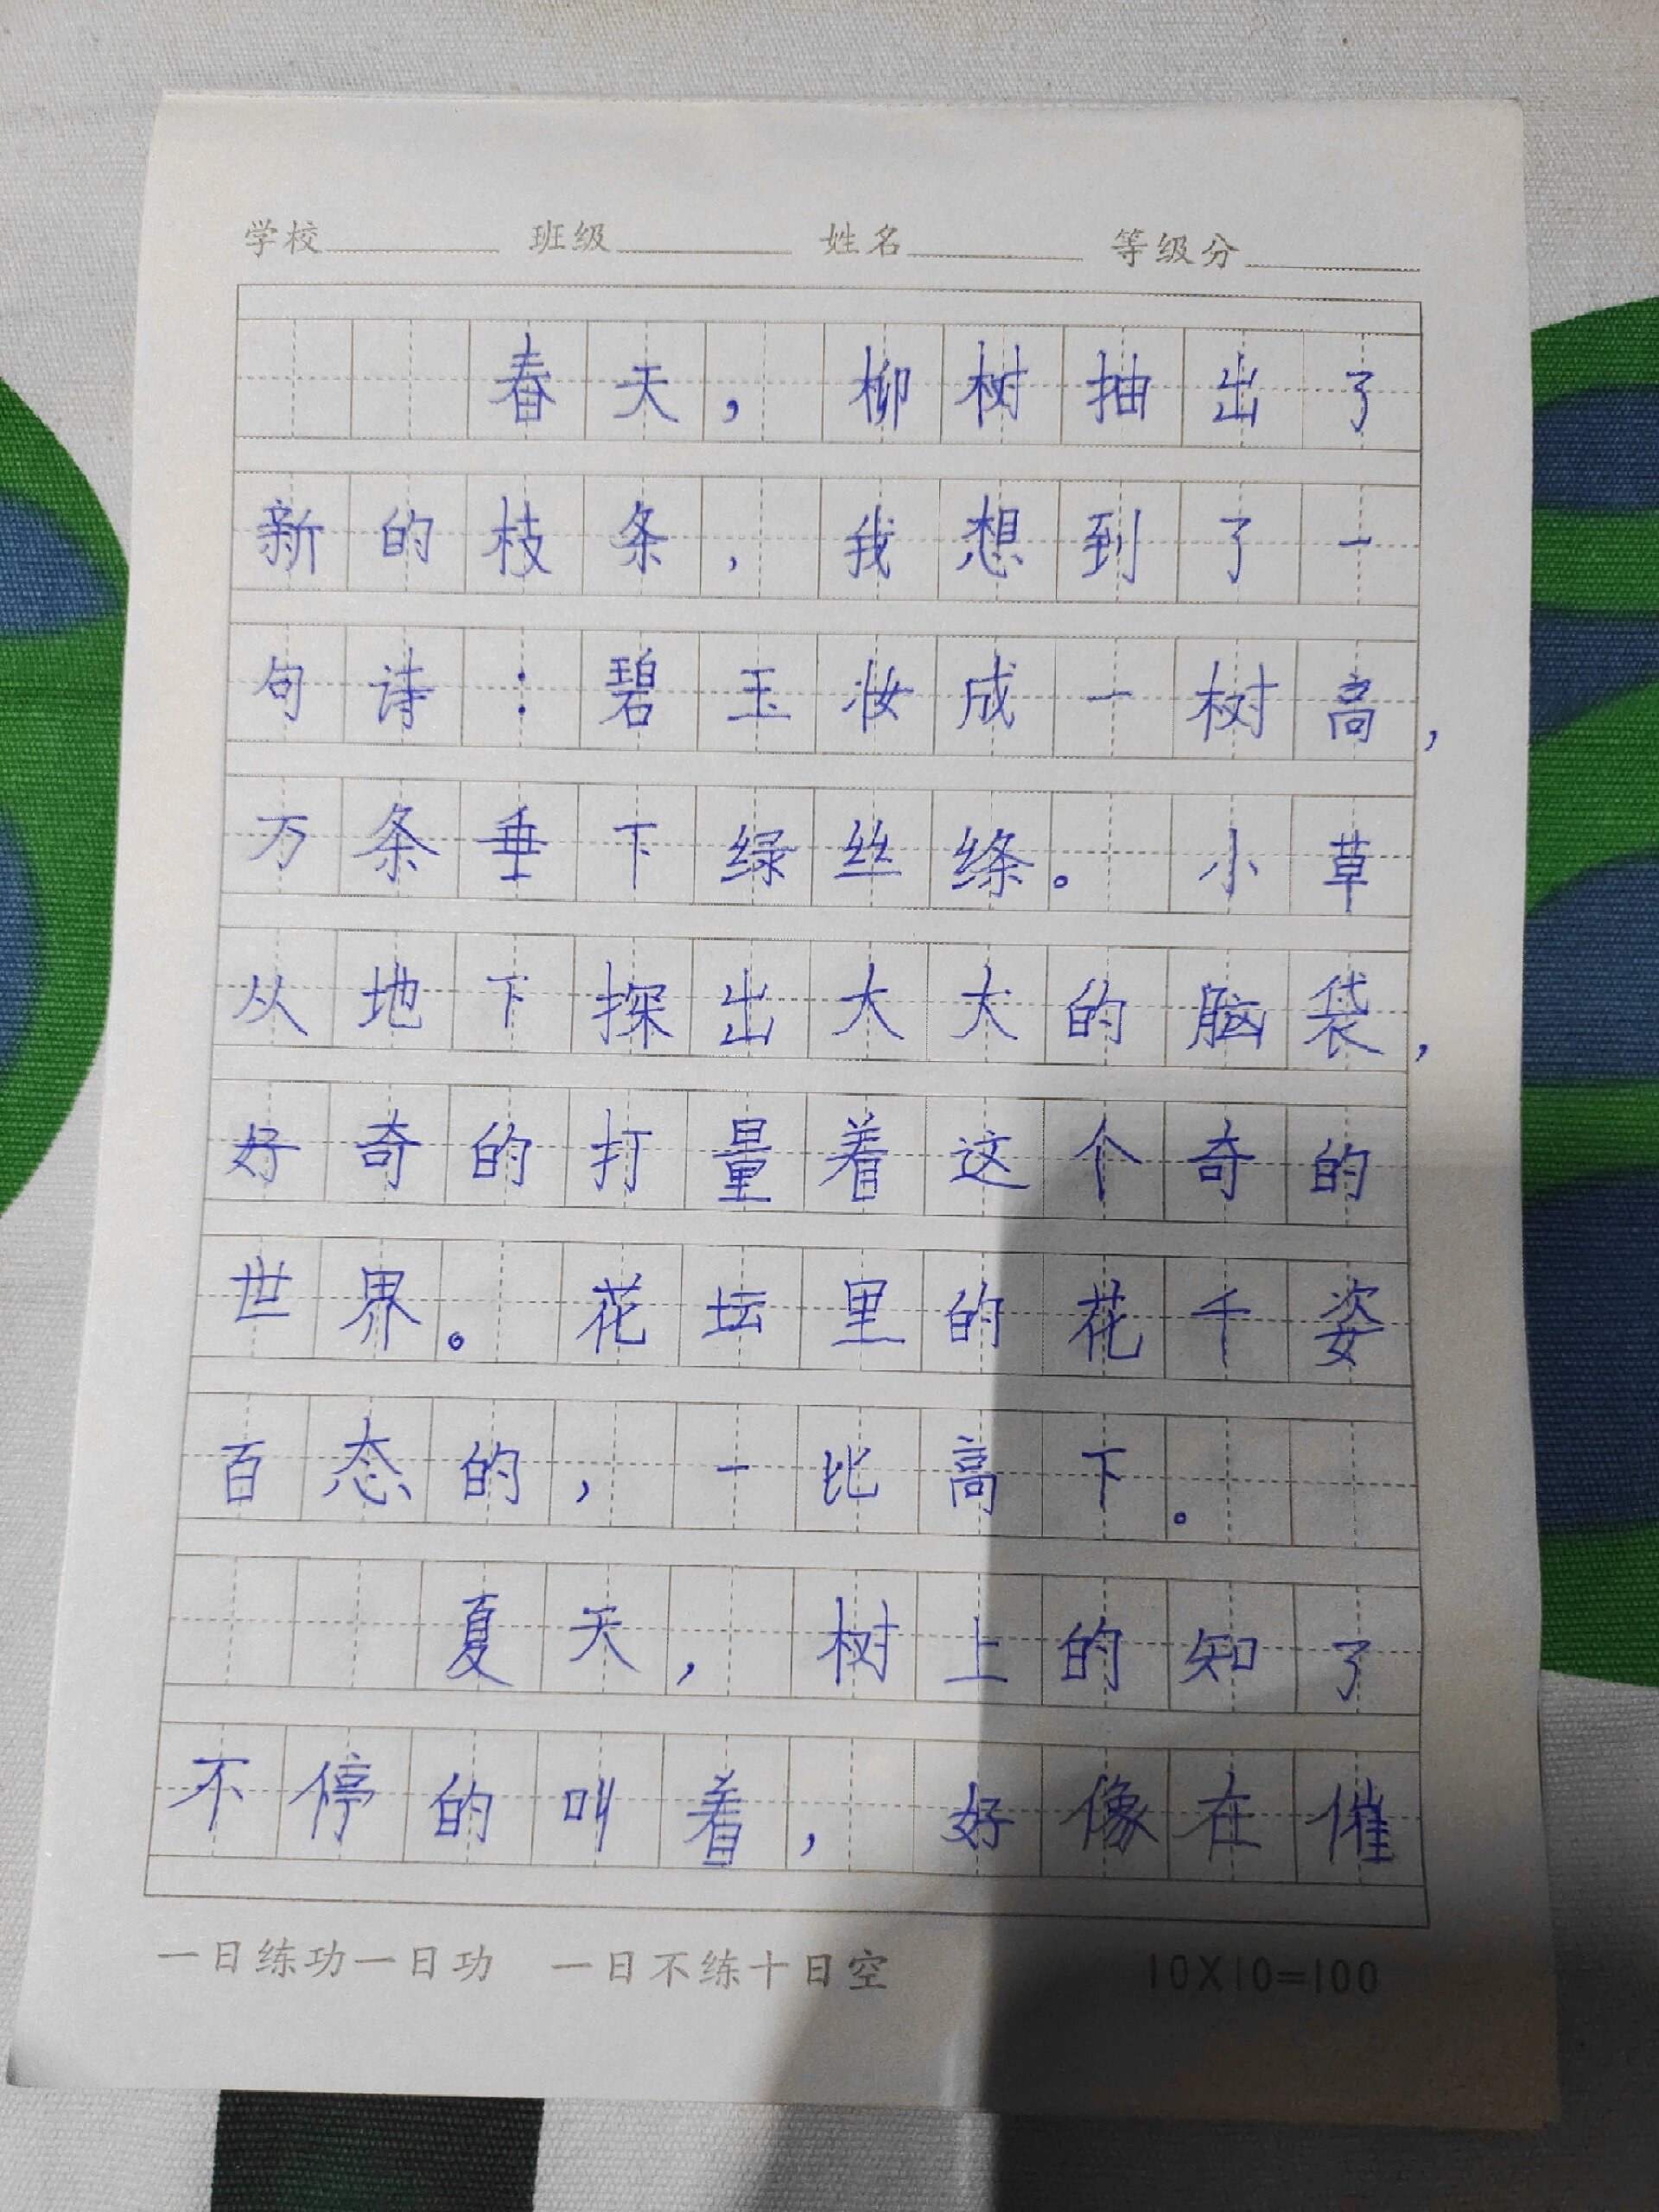 学校 班级 姓名 等级分
春天，柳树抽出了
新的枝条，我想到了一
句诗：碧玉妆成一树高，
万条垂下绿丝绦。小草
从地下探出大大的脑袋，
好奇的打量着这个奇的
世界。花坛里的花千姿
百态的，一比高下。
夏天，树上的知了
不停的叫着，好像在催
一日练功一日功 一日不练十日空 10X10=100